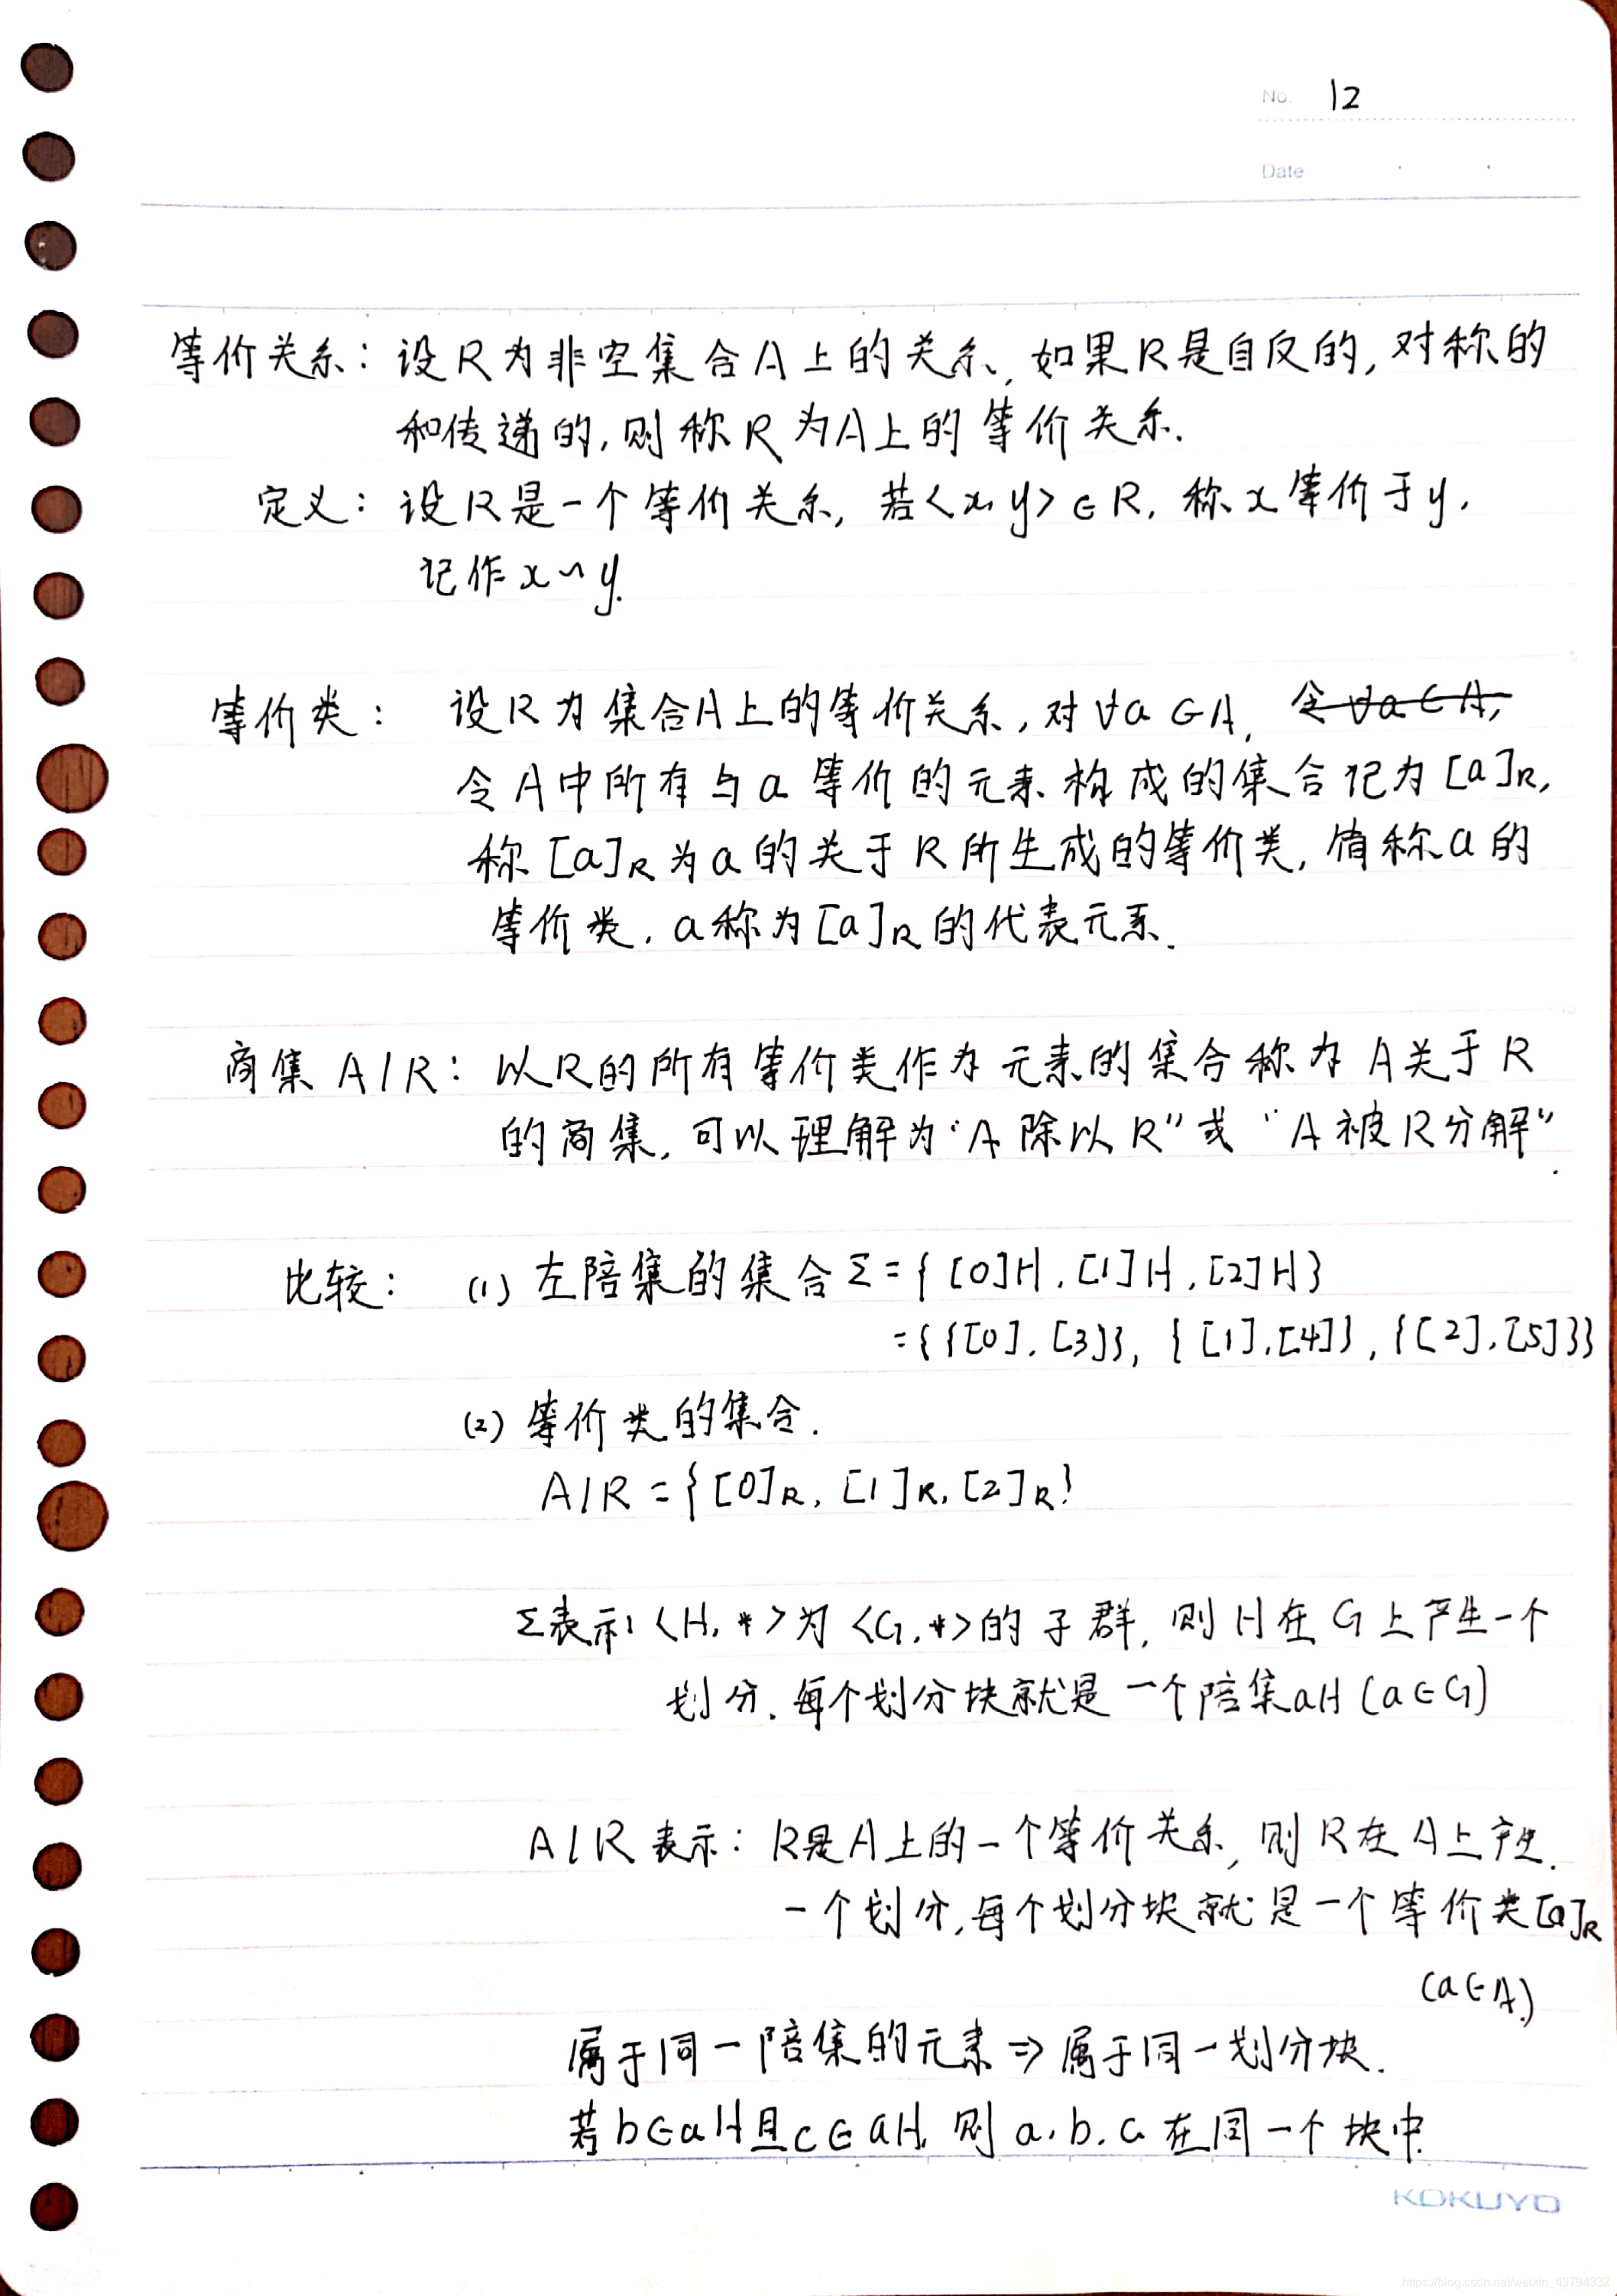 No. 12
Date
等价关系：设R为非空集合A上的关系，如果R是自反的，对称的
和传递的，则称R为A上的等价关系.
定义：设R是一个等价关系，若<x,y>∈R，称x等价于y，
记作x~y.
等价类：设R为集合A上的等价关系，对∀a∈A，令∀a∈A，
令A中所有与a等价的元素构成的集合记为[a]R，
称[a]R为a的关于R所生成的等价类，简称a的
等价类，a称为[a]R的代表元系.
商集A/R：以R的所有等价类作为元素的集合称为A关于R
的商集，可以理解为“A除以R”或“A被R分解”.
比较：(1) 左陪集的集合Σ={[0]H,[1]H,[2]H}
={{[0],[3]},{[1],[4]},{[2],[5]}}
(2) 等价类的集合.
A/R={[0]R,[1]R,[2]R}
Σ表示：<H,*>为<G,*>的子群，则H在G上产生一个
划分.每个划分块就是一个陪集aH (a∈G)
A/R表示：R是A上的一个等价关系，则R在A上产生.
一个划分，每个划分块就是一个等价类[a]R
(a∈A)
属于同一陪集的元素⇒属于同一划分块.
若b∈aH且c∈aH，则a.b.c在同一个块中.
KOKUYO
https://blog.csdn.net/weixin_43794332